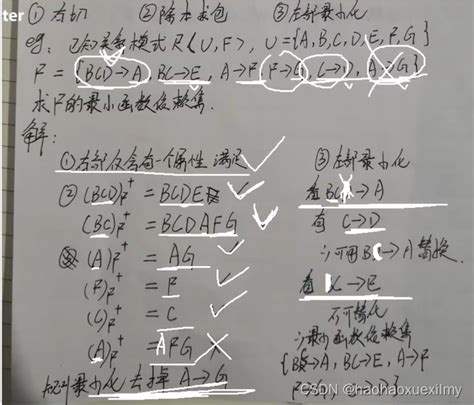 ter ① 右切 ② 除本求包 ③ 左部最小化
eg. 已知关系模式 R<U,F>, U={A,B,C,D,E,F,G}
F = {BCD→A, BC→E, A→F, F→G, C→D, A→G}
求F的最小函数依赖集.
解:
① 右部仅含有一个属性 满足
② (BCD)F+ = BCDE
(BC)F+ = BCDAFG
(A)F+ = AG
(F)F+ = F
(C)F+ = C
(A)F+ = AFG
最小化 去掉 A→G
③ 左部最小化
→A
有 C→D
∴可用 BC→A 替换
C→E
不可替化
∴最小函数依赖集
{BC→A, BC→E, A→F
CSDN @haohaoxuexilmy